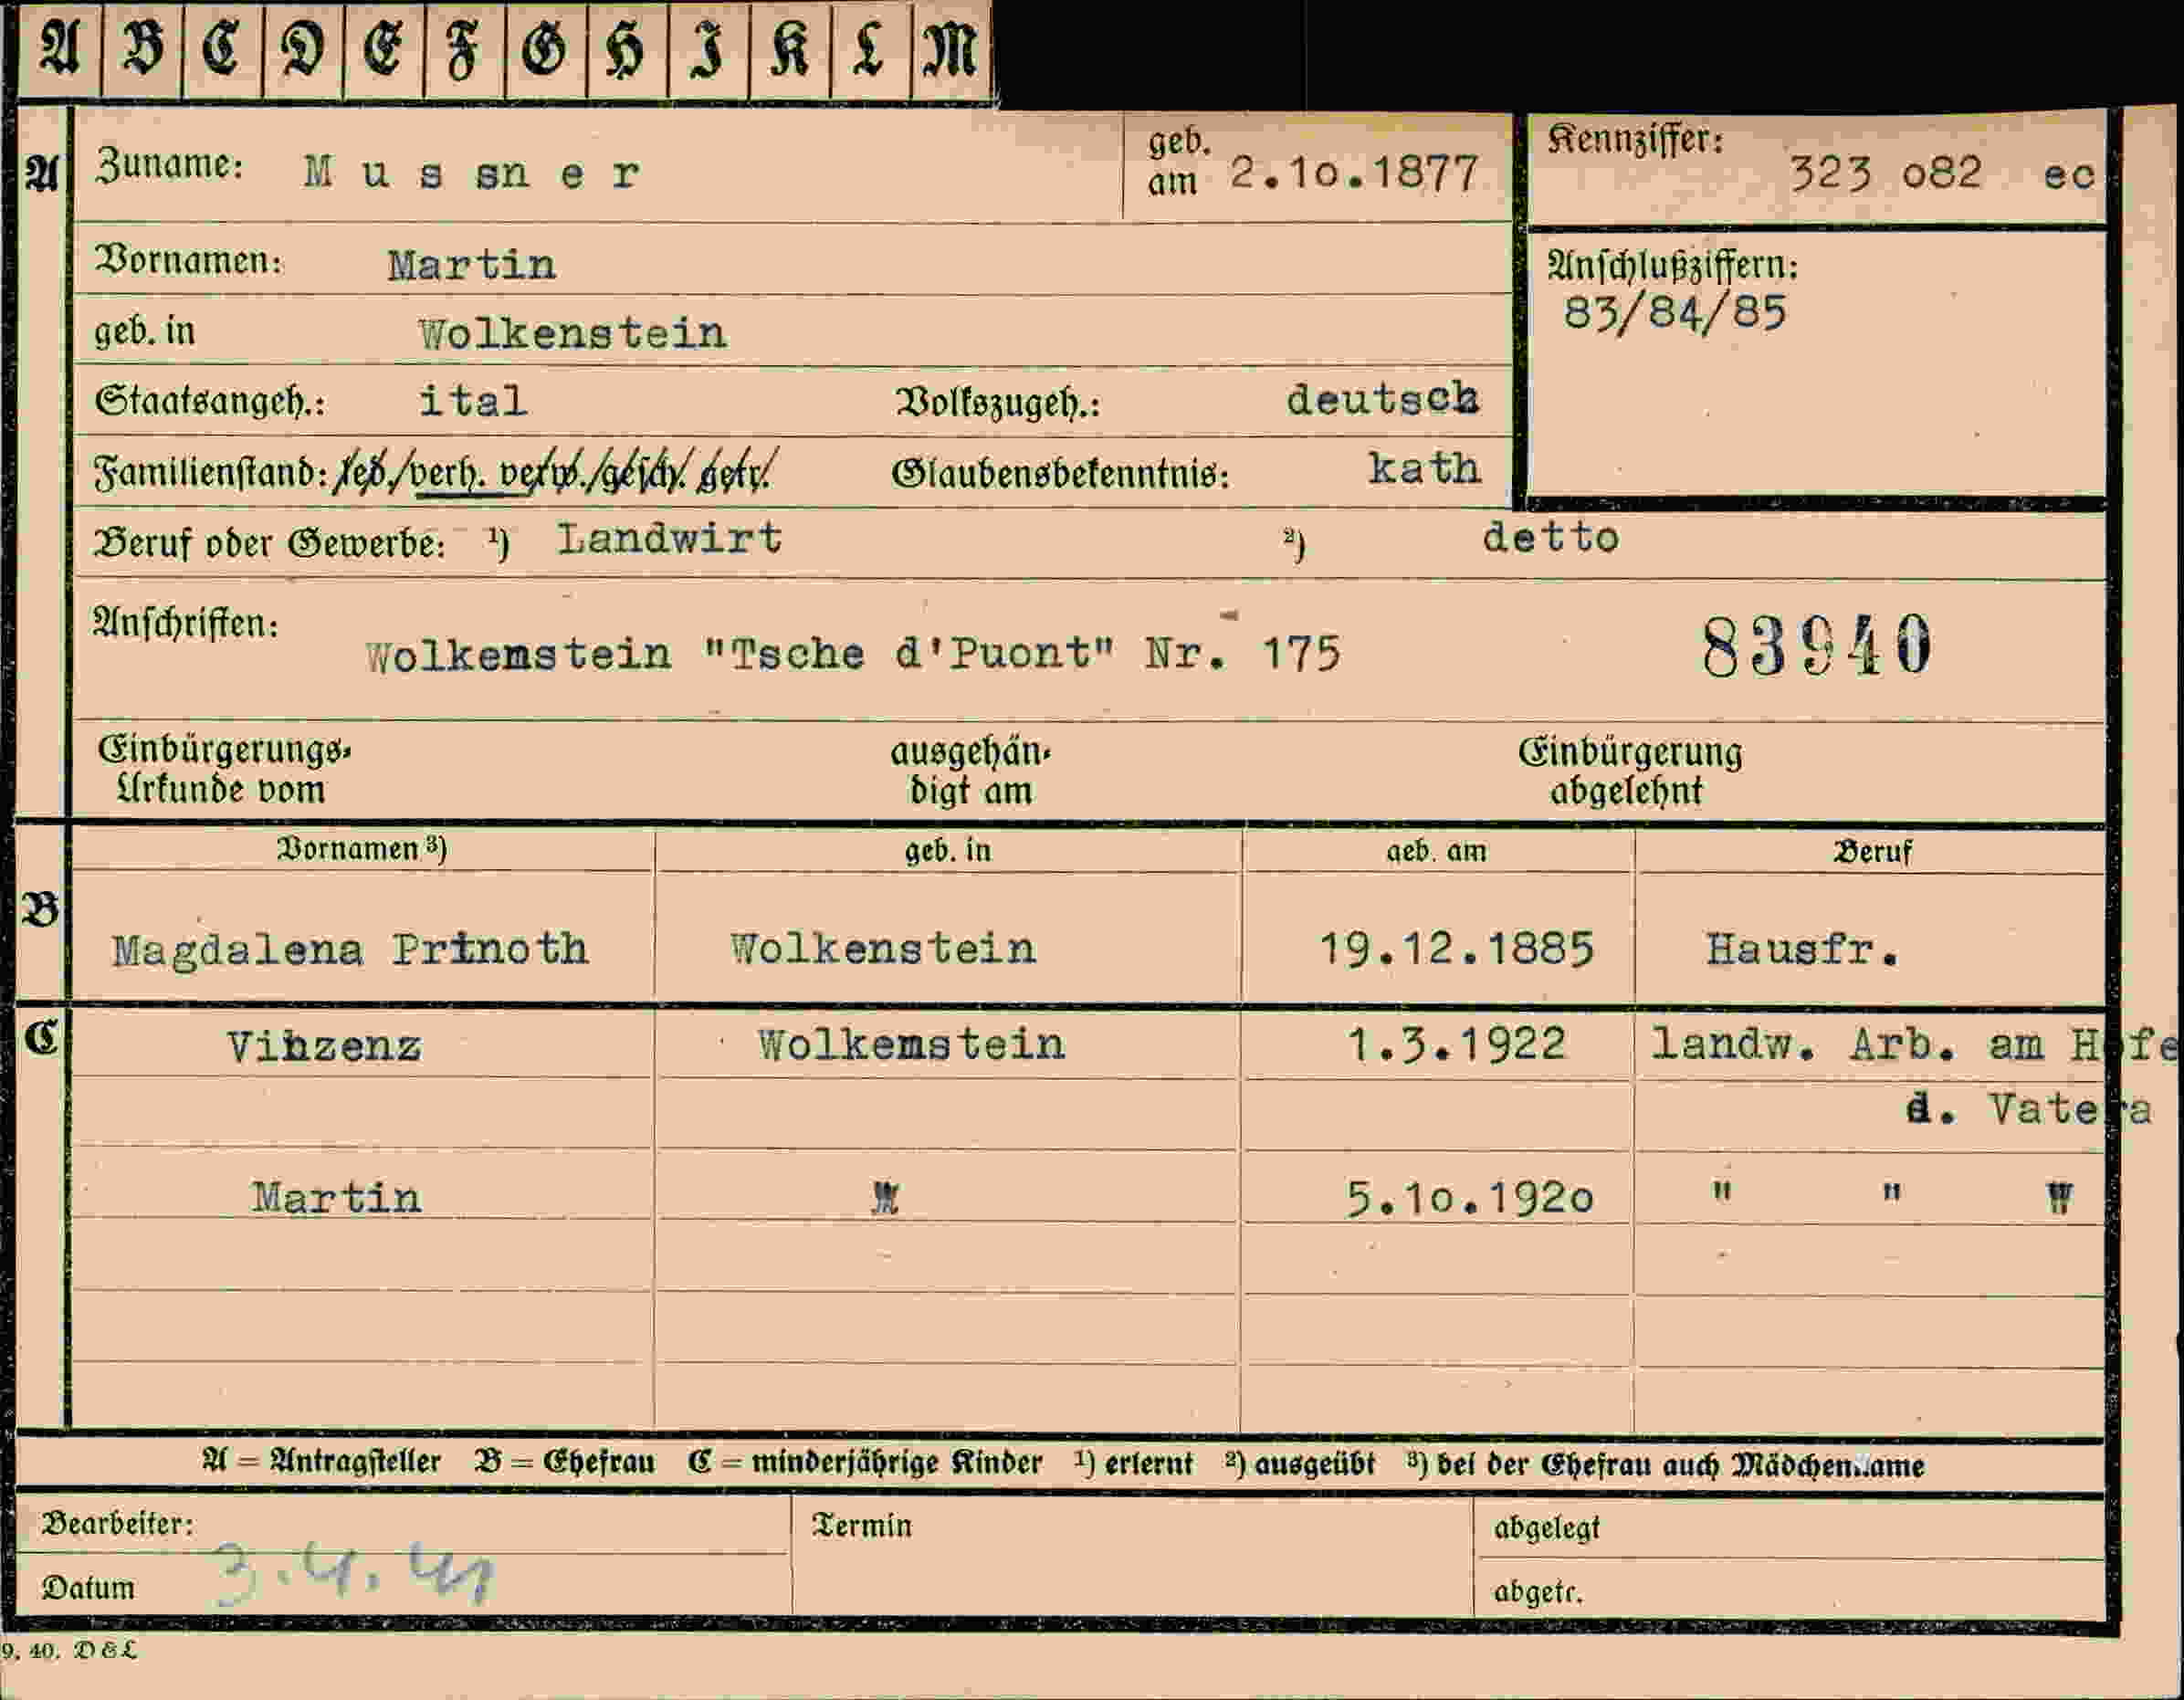 A B C D E F G H I K L M
A Zuname: M u s sn e r geb. am 2.1o.1877 Kennziffer: 323 o82 ec
Vornamen: Martin Anschlußziffern:
83/84/85
geb. in Wolkenstein
Staatsangeh.: ital Volkszugeh.: deutsch
Familienstand: led./verh. verw./gesch. getr. Glaubensbekenntnis: kath
Beruf oder Gewerbe: ¹) Landwirt ²) detto
Anschriften: Wolkemstein "Tsche d'Puont" Nr. 175 83940
Einbürgerungs- ausgehän- Einbürgerung
Urkunde vom digt am abgelehnt
Vornamen ³) geb. in geb. am Beruf
B Magdalena Prinoth Wolkenstein 19.12.1885 Hausfr.
C Vihzenz Wolkemstein 1.3.1922 landw. Arb. am Hofe
d. Vatera
Martin " 5.1o.192o " " "
A = Antragsteller B = Ehefrau C = minderjährige Kinder ¹) erlernt ²) ausgeübt ³) bei der Ehefrau auch Mädchenname
Bearbeiter: Termin abgelegt
Datum 3.4.41 abgetr.
9. 40. D&L